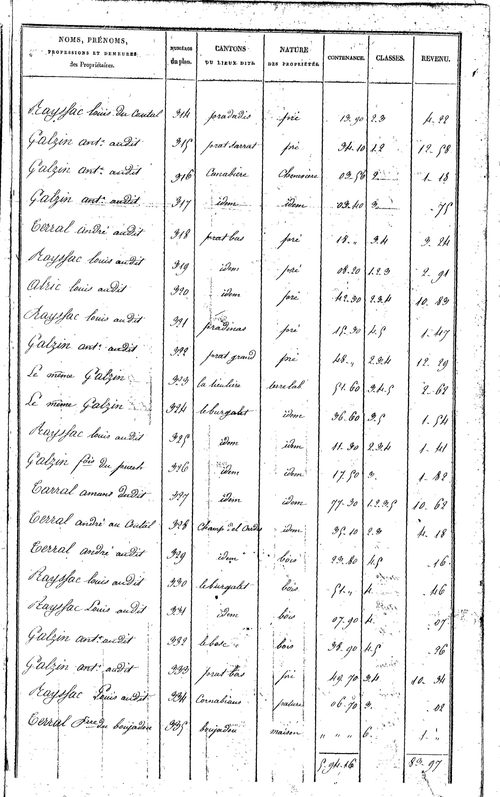 NOMS, PRÉNOMS, PROFESSIONS ET DEMEURES des Propriétaires. NUMÉROS du plan. CANTONS OU LIEUX DITS NATURE DES PROPRIÉTÉS. CONTENANCE. CLASSES. REVENU.
Rayssac louis du Cautal 314 pradadis pré 13.90 2.3 4.22
Galzin ant. audit 315 prat sarrat pré 34.10 1.2 12.58
Galzin ant. audit 316 Canabiere Chenviere 03.56 2 1.18
Galzin ant. audit 317 idem idem 03.40 3 .75
Terral andré audit 318 prat bas pré 18.„ 3.4 3.24
Rayssac louis audit 319 idem pré 08.20 1.2.3 2.91
Alric louis audit 320 idem pré 42.30 2.3.4 10.83
Rayssac louis audit 321 pradinas pré 15.30 4.5 1.47
Galzin ant. audit 322 prat grand pré 48.„ 2.3.4 12.29
Le même Galzin 323 la teulière terre lab. 51.60 3.4.5 2.62
Le même Galzin 324 le burgalet idem 36.60 3.5 1.54
Rayssac louis audit 325 idem idem 11.30 2.3.4 1.41
Galzin fois du 326 idem idem 17.50 3 1.82
Carral amans dudit 327 idem idem 77.30 1.2.3.5 10.62
Terral andré au Cautal 328 Champ idem 35.10 2.3 4.18
Terral andré audit 329 idem bois 23.80 4.5 .16
Rayssac louis audit 330 le burgalet bois 51.„ 4 .46
Rayssac Louis audit 331 idem bois 07.90 4 .07
Galzin ant. audit 332 le bosc bois 38.90 4.5 .26
Galzin ant. audit 333 prat bas pré 49.70 3.4 10.34
Rayssac Louis audit 334 Cornabious pature 06.70 3 .02
Terral du boujadou 335 boujadou maison „ „ „ 6 1.„
5.94.16 83.97